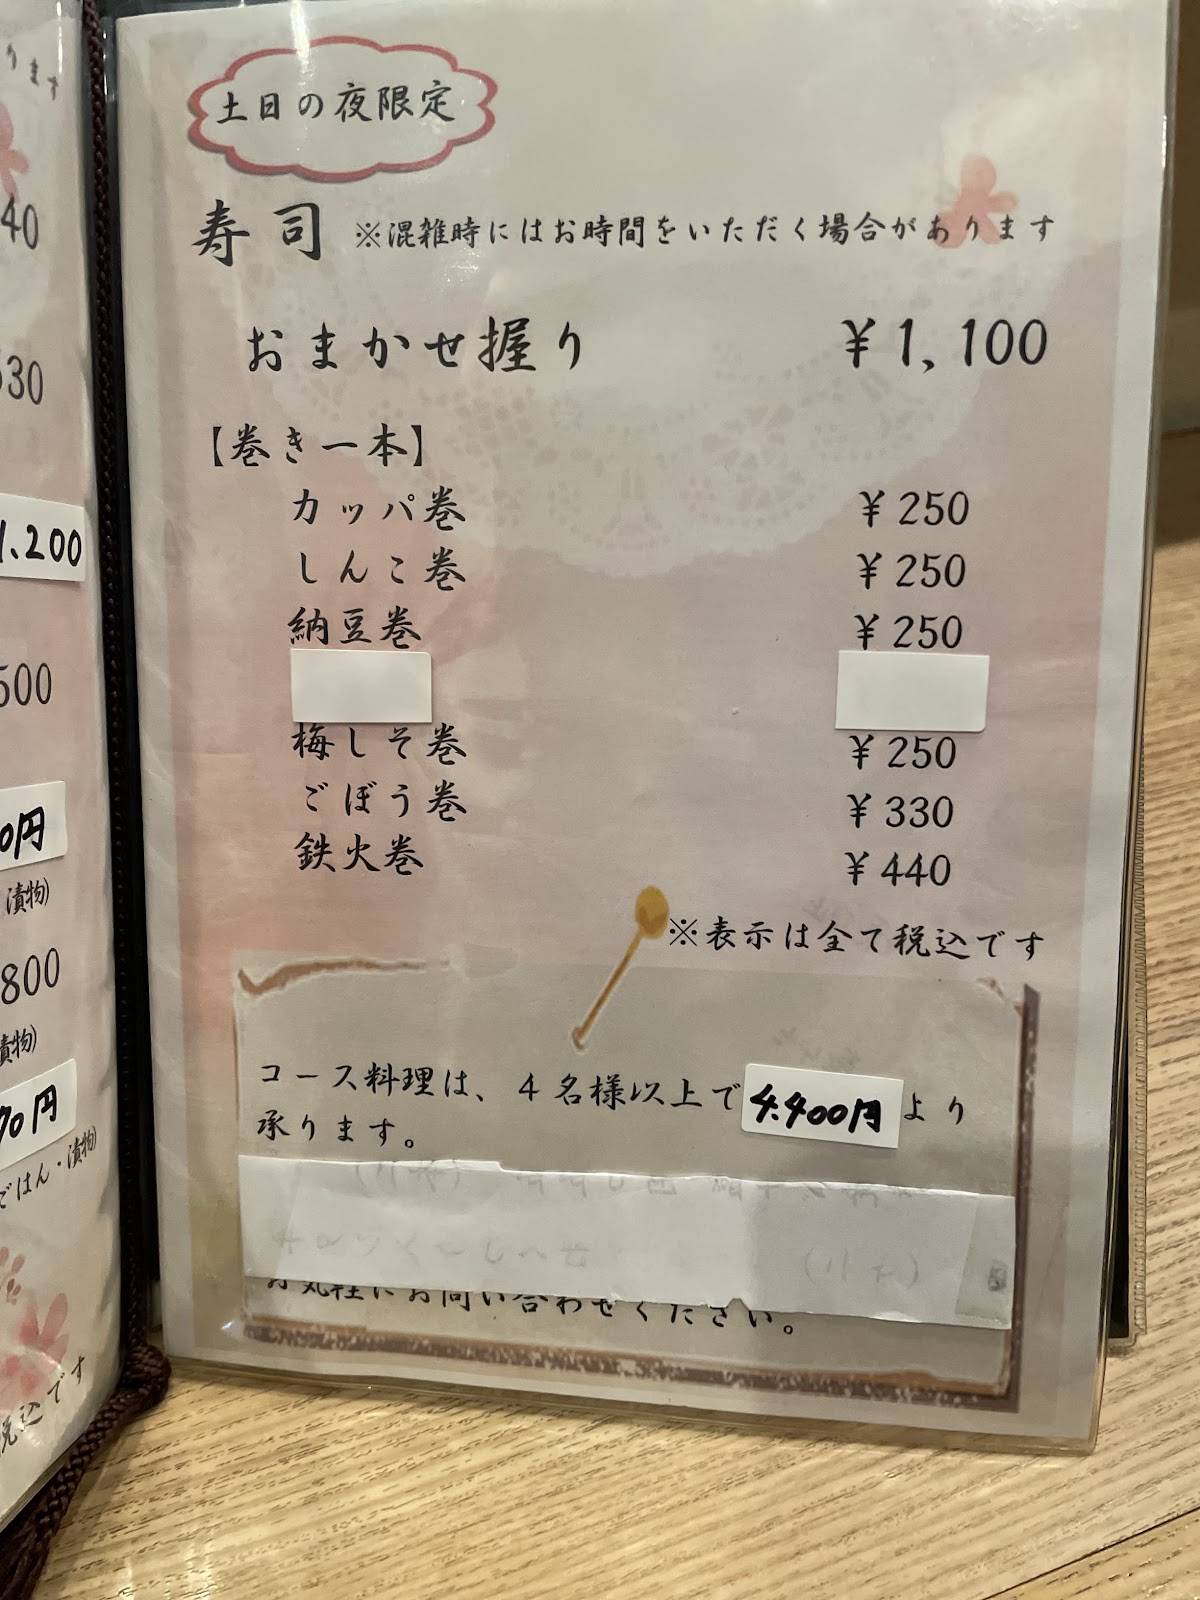 ります
40
530
1.200
500
0円
漬物)
800
漬物)
70円
ごはん・漬物)
税込です
土日の夜限定
寿司 ※混雑時にはお時間をいただく場合があります
おまかせ握り ¥1,100
【巻き一本】
カッパ巻 ¥250
しんこ巻 ¥250
納豆巻 ¥250
梅しそ巻 ¥250
ごぼう巻 ¥330
鉄火巻 ¥440
※表示は全て税込です
コース料理は、4名様以上で4.400円より
承ります。
お気軽にお問い合わせください。